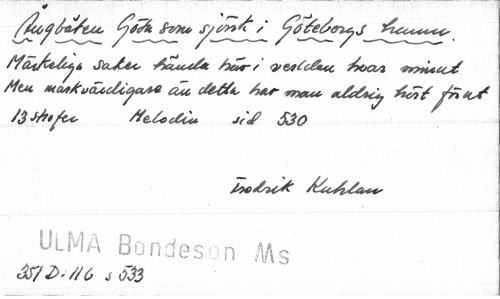 Ångbåten Göta som sjönk i Göteborgs hamn.
Märkeliga saker hända här i verlden hvar minut
Men märkvärdigare än detta har man aldrig hört förut
13 strofer Melodin sid 530
Fredrik Kuhlau
ULMA Bondeson Ms
351 D:116 s 533